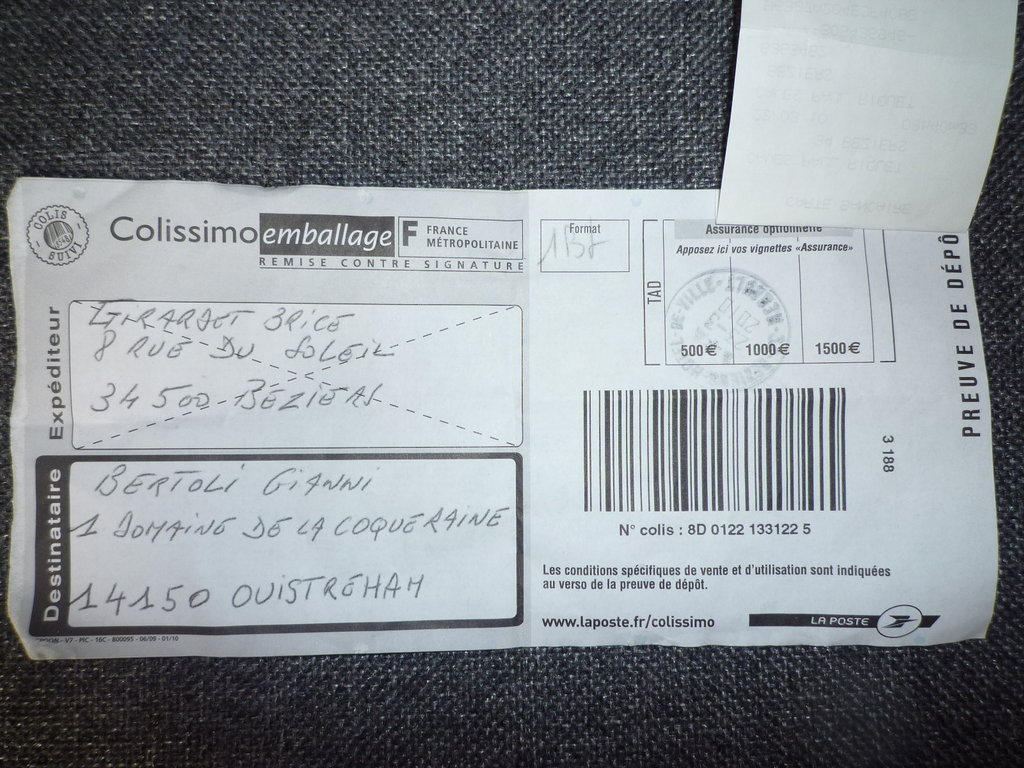 COLIS SUIVI
Colissimo emballage F FRANCE MÉTROPOLITAINE
REMISE CONTRE SIGNATURE
Expéditeur
BRICE
8 RUE DU SOLEIL
34500 BEZIERS
Destinataire
BERTOLI GIANNI
1 DOMAINE DE LA COQUERAINE
14150 OUISTREHAM
V7 - PIC - 16C - 800095 - 06/09 - 01/10
Format
TAD
Assurance optionnelle
Apposez ici vos vignettes «Assurance»
500€ 1000€ 1500€
3 188
N° colis : 8D 0122 133122 5
Les conditions spécifiques de vente et d'utilisation sont indiquées
au verso de la preuve de dépôt.
www.laposte.fr/colissimo
LA POSTE
PREUVE DE DÉPÔ